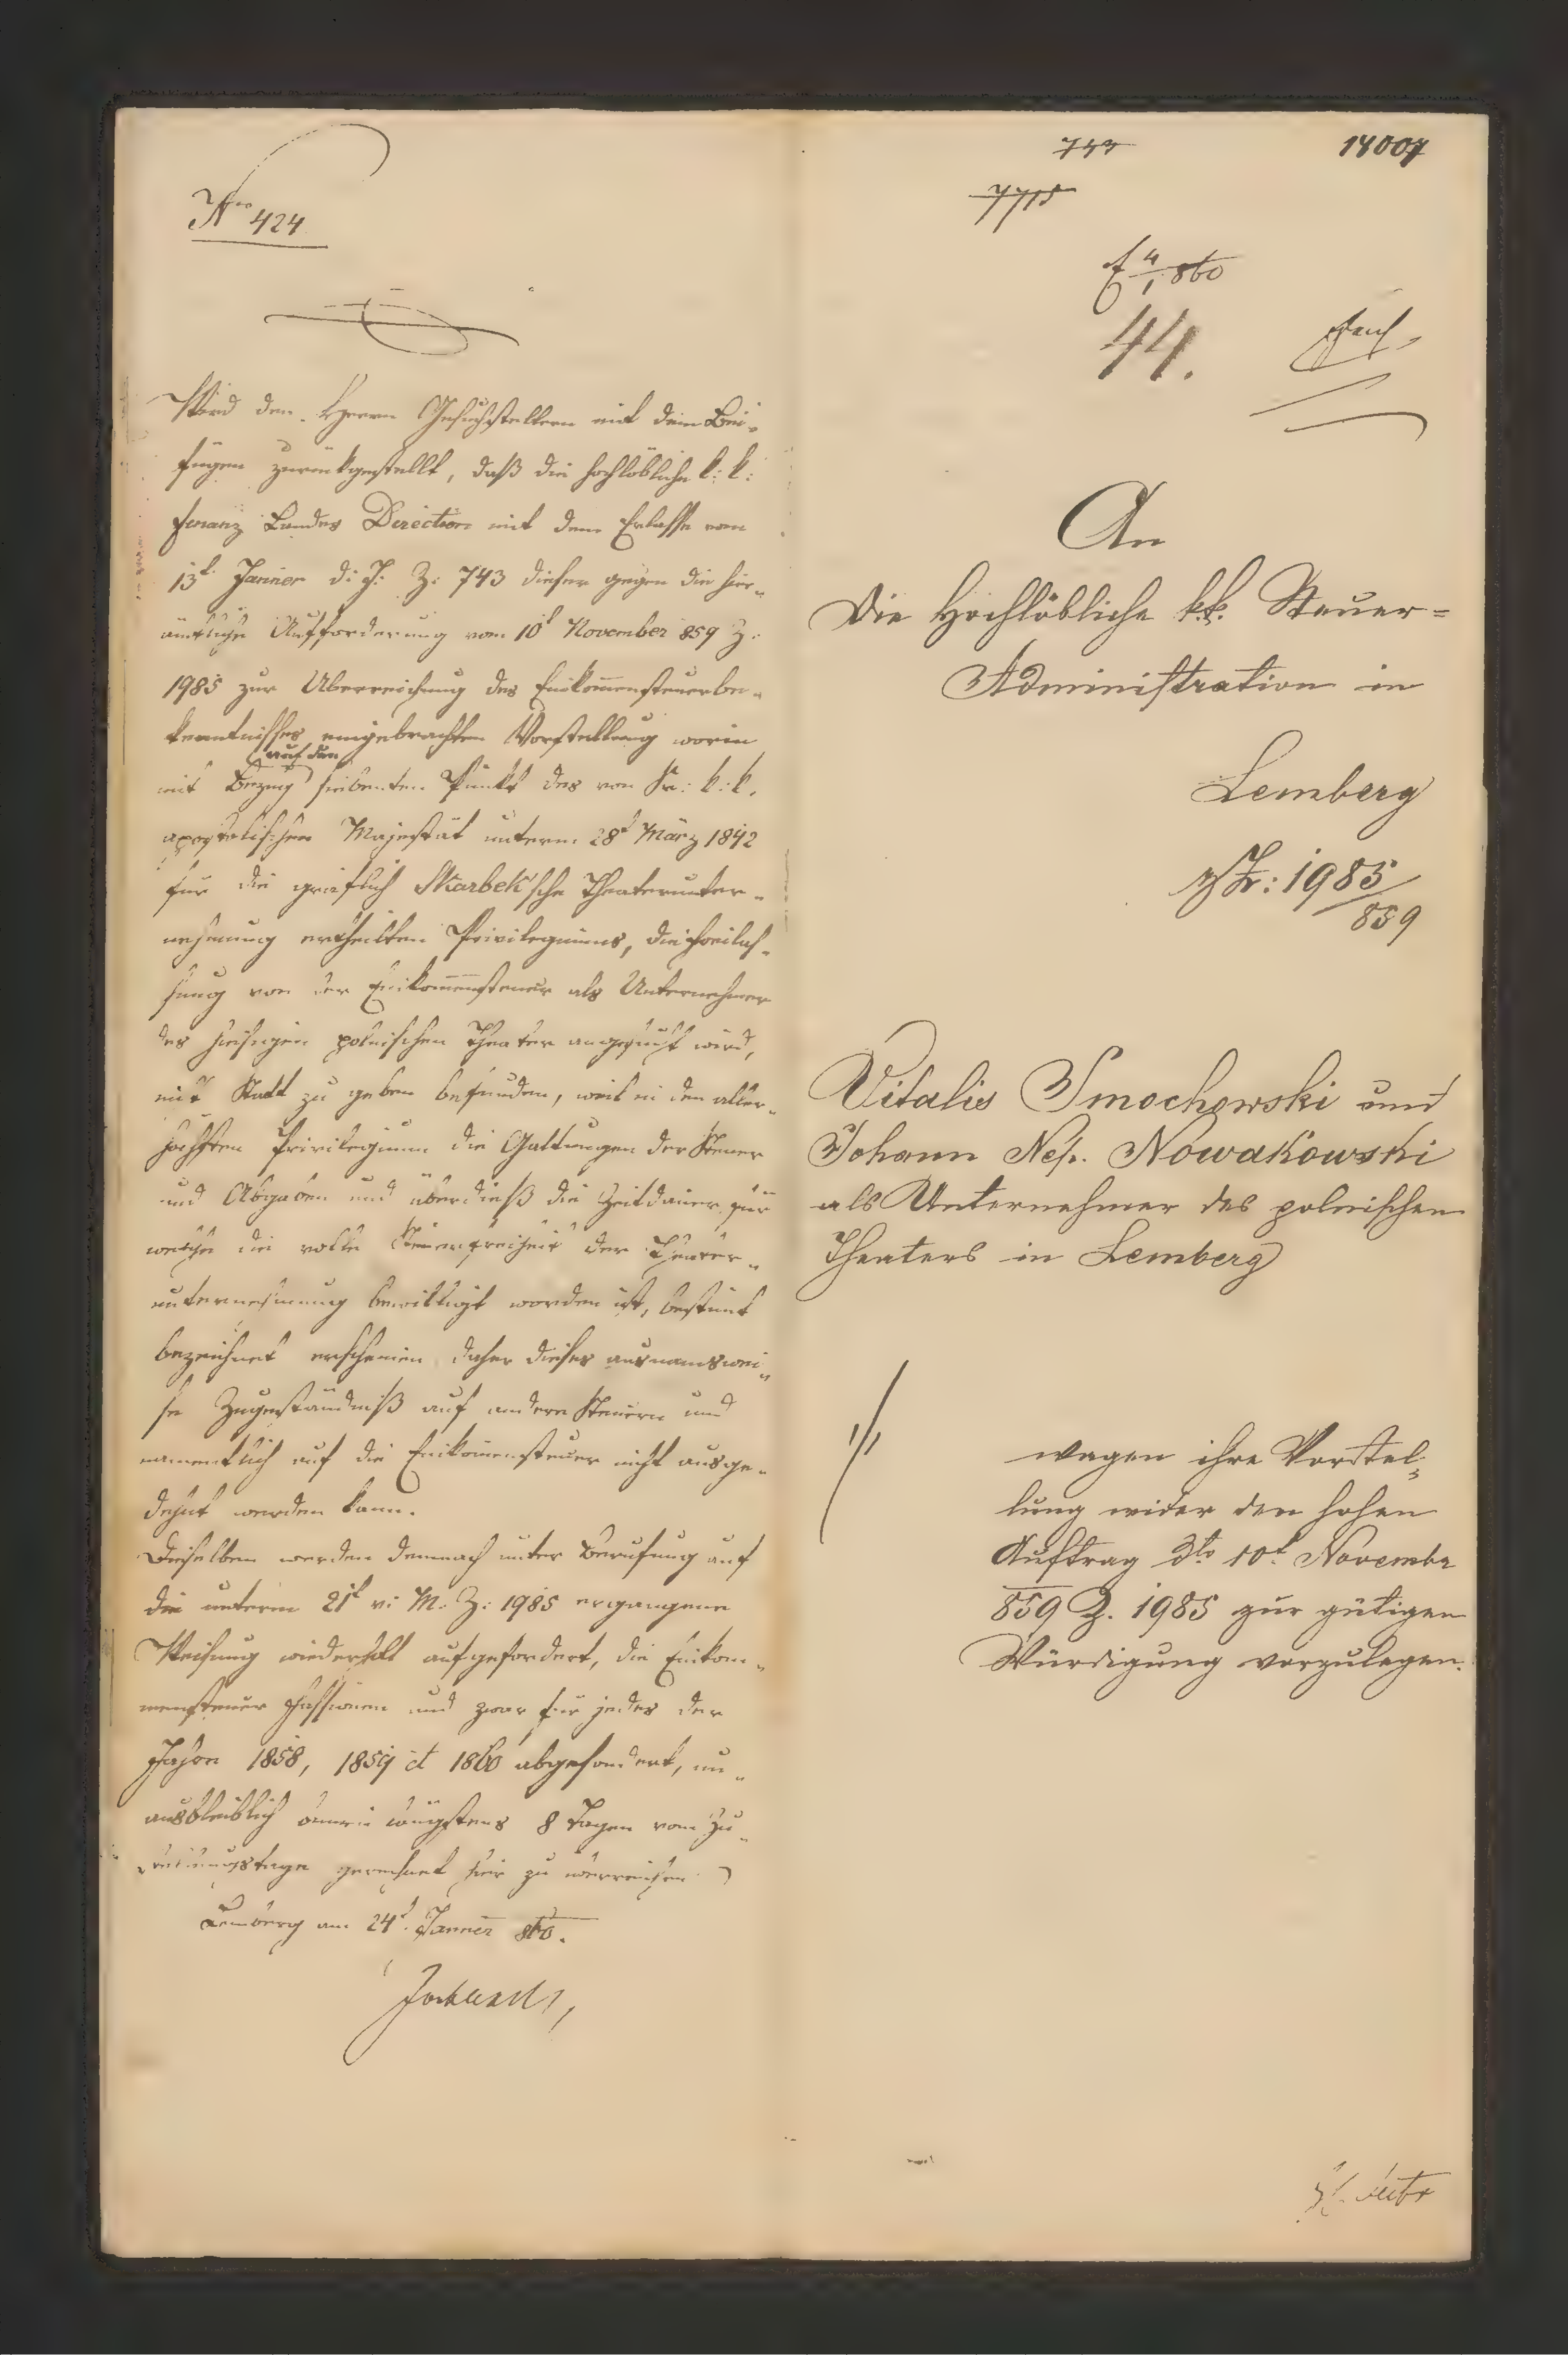 Nro 424
Wird den Herrn Gesuchstellern mit dem Bei-
fügen zurückgestellt, daß die hochlöbliche k: k:
Finanz Landes Direction mit dem Erlasse vom
13t Jänner d: J: Z: 743 dieser gegen die hier-
ämtliche Aufforderung vom 10t November 859 Z:
1985 zur Uberreichung des Einkom̅ensteuerbe-
kenntnisses eingebrachten Vorstellung worin
auf den
mit Bezug siebenten Punkt des von Sr: k: k.
apostolischen Majestät unterm 28t März 1842
für die gräflich Skarbek'sche Theaterunter-
nehmung ertheilten Privilegiums, die Freilas-
sung von der Einkom̅ensteuer als Unternehmer
des hiesigen polnischen Theater angesucht wird,
nicht Statt zu geben befunden, weil in dem aller-
höchsten Privilegium die Gattungen der Steuer
und Abgaben und überdieß die Zeitdauer für
welche die volle Steuerfreiheit der Theater-
unternehmung bewilligt worden ist, bestimt
bezeichnet erscheinen, daher dieses ausnamswei-
se Zugeständniß auf andere Steuern und
namentlich auf die Einkom̅ensteuer nicht ausge-
dehnt werden kann.
Dieselben werden demnach unter Berufung auf
die unterm 21t v: M. Z: 1985 ergangene
Weisung wiederholt aufgefordert, die Einkom-
mensteuer Fassionen und zwar für jedes der
Jahre 1858, 1859 et 1860 abgesondert, un-
ausbleiblich binnen längstens 8 Tagen vom Zu-
stellungstage gerechnet hier zu überreichen
Lemberg am 24t Jänner 860.
743
14007
7715
4/1 860
44.
An
Die Hochlöbliche k.k. Steuer-
Administration in
Lemberg
zZ: 1985/859
Vitalis Smochowski und
Johann Nep. Nowakowski
als Unternehmer des polnischen
Theaters in Lemberg
wagen ihre Vorstel-
lung wider den hohen
Auftrag dto 10t Novembr
859 Z. 1985 zur gütigen
Würdigung vorzulegen.